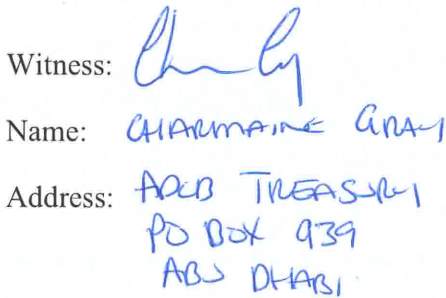 Witness:
Name: CHARMAINE GRAY
Address: ADCB TREASURY
PO BOX 939
ABU DHABI